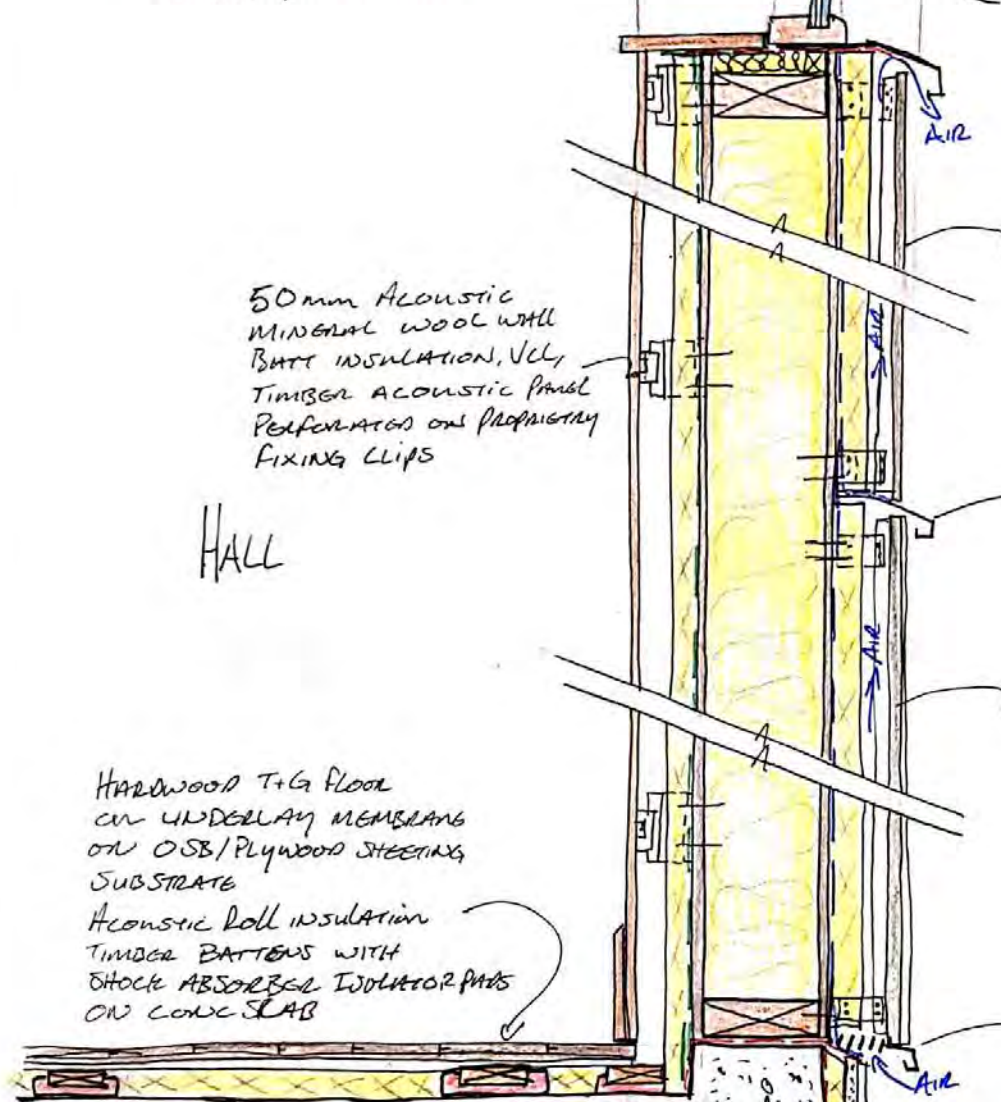 AIR
50mm ACOUSTIC
MINERAL WOOL WALL
BATT INSULATION, VCL,
TIMBER ACOUSTIC PANEL
PERFORATED ON PROPRIETRY
FIXING CLIPS
AIR
HALL
AIR
HARDWOOD T+G FLOOR
ON UNDERLAY MEMBRANE
ON OSB/PLYWOOD SHEETING
SUBSTRATE
ACOUSTIC ROLL INSULATION
TIMBER BATTENS WITH
SHOCK ABSORBER ISOLATOR PADS
ON CONC SLAB
AIR